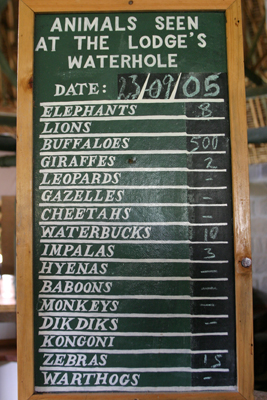 ANIMALS SEEN
AT THE LODGE'S
WATERHOLE
DATE: 23/09/05
ELEPHANTS 8
LIONS
BUFFALOES 500
GIRAFFES 2
LEOPARDS -
GAZELLES -
CHEETAHS -
WATERBUCKS 10
IMPALAS 3
HYENAS -
BABOONS -
MONKEYS -
DIK DIKS -
KONGONI
ZEBRAS 15
WARTHOGS -